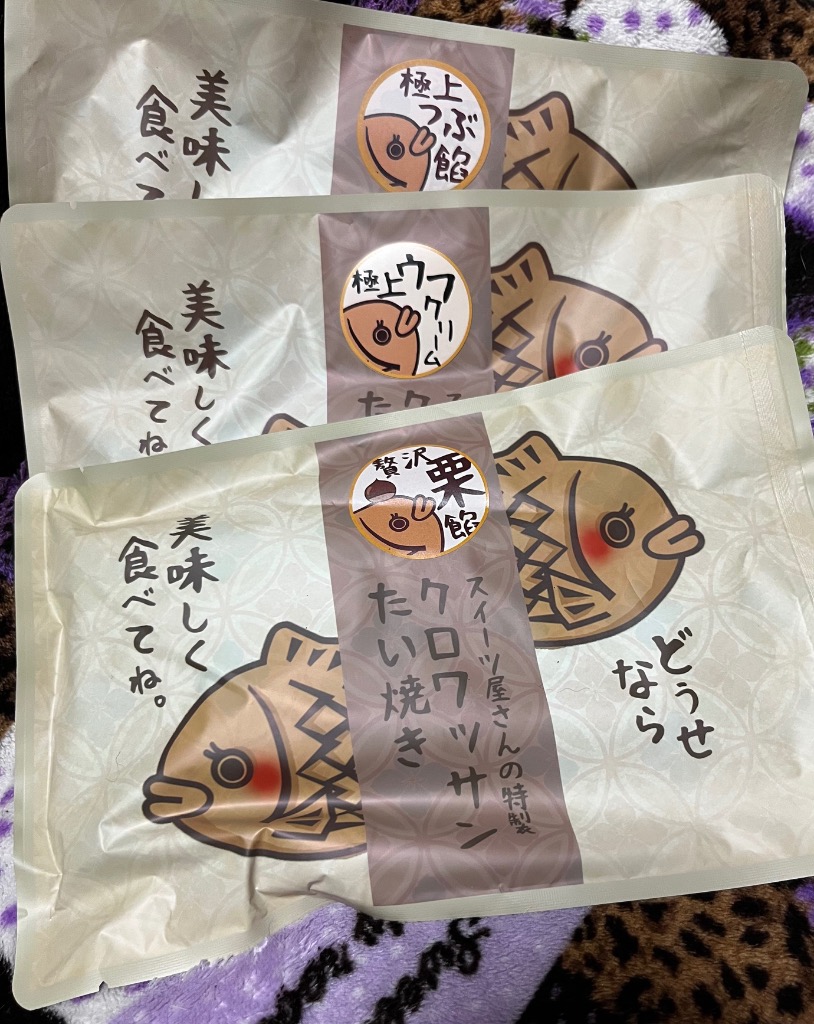 極上
つぶ
餡
美味しく
食べて
極上ウフ
クリーム
美味しく
食べてね
贅沢
栗
餡
どうせ
なら
スイーツ屋さんの特製
クロワッサン
たい焼き
美味しく
食べてね。